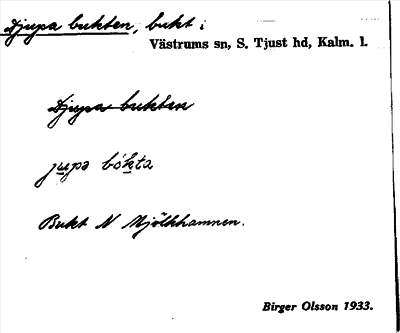 Djupa bukten, bukt i
Västrums sn, S. Tjust hd, Kalm. l.
Djupa bukten
jupə bókta
Bukt N Mjölkhamnen.
Birger Olsson 1933.